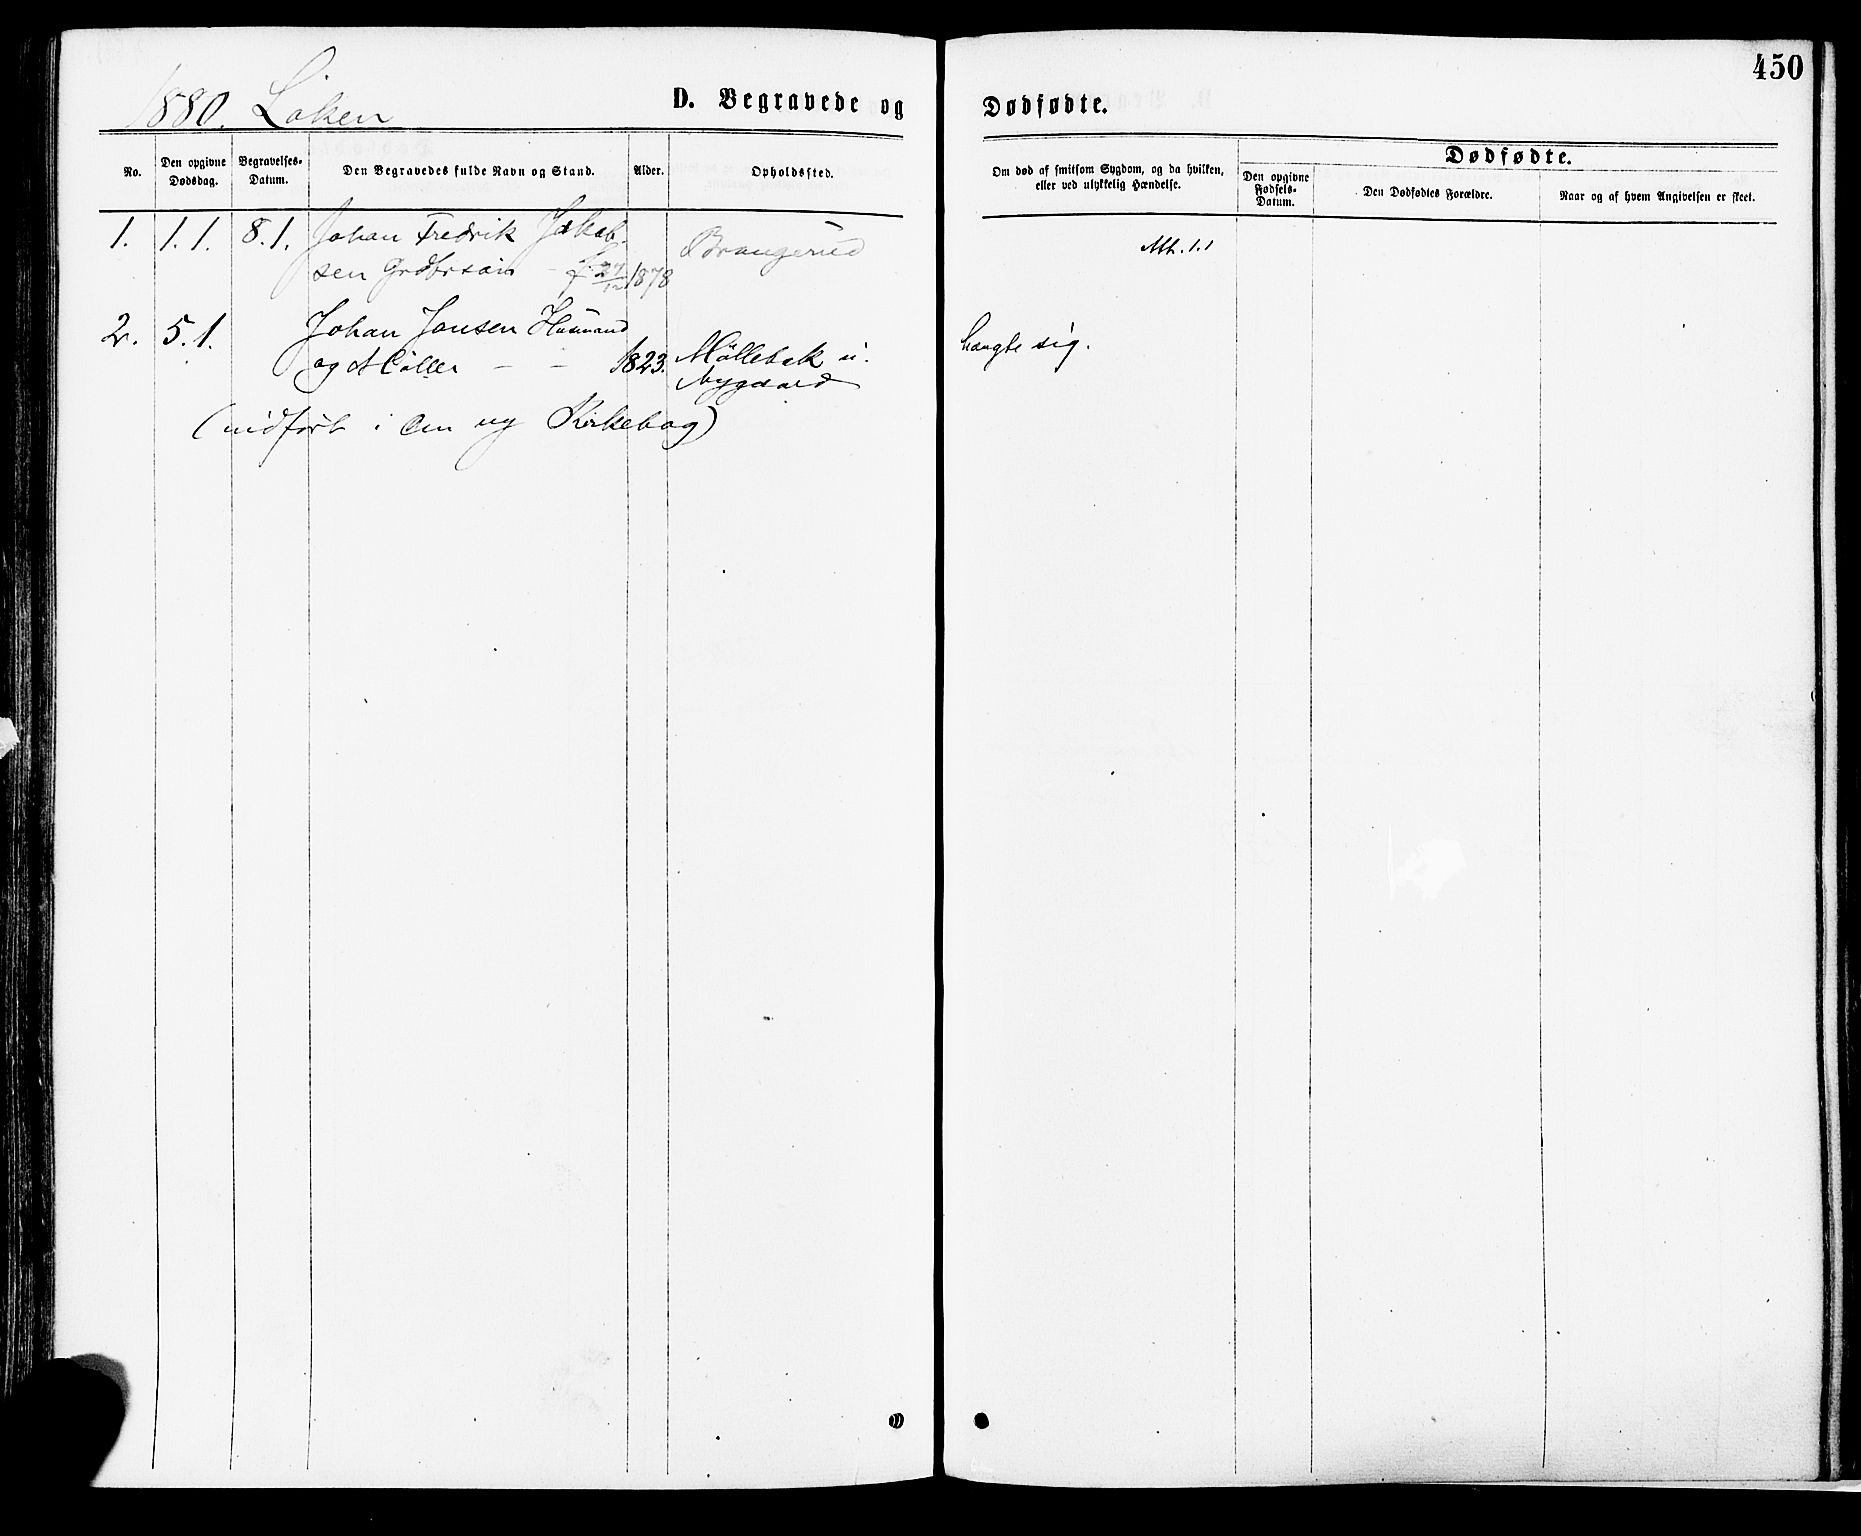 450
1880. Løken
D. Begravede og Dødfødte.
No.
Den opgivne Dødsdag.
Begravelses-Datum.
Den Begravedes fulde Navn og Stand.
Alder.
Opholdssted.
Om død af smitsom Sygdom, og da hvilken, eller ved ulykkelig Hændelse.
Dødfødte.
Den opgivne Fødsels-Datum.
Den Dødfødtes Forældre.
Naar og af hvem Angivelsen er skeet.
1. 1.1. 8.1. Johan Fredrik Jakob- Brangerud Att. 1.1
sen Grdbrsøn - f. 27/12 1878
2. 5.1. Johan Jansen Husmand hængte sig.
og Møller - - 1823. Møllebæk u.
Nygaard
(indført i den ny Kirkebog)